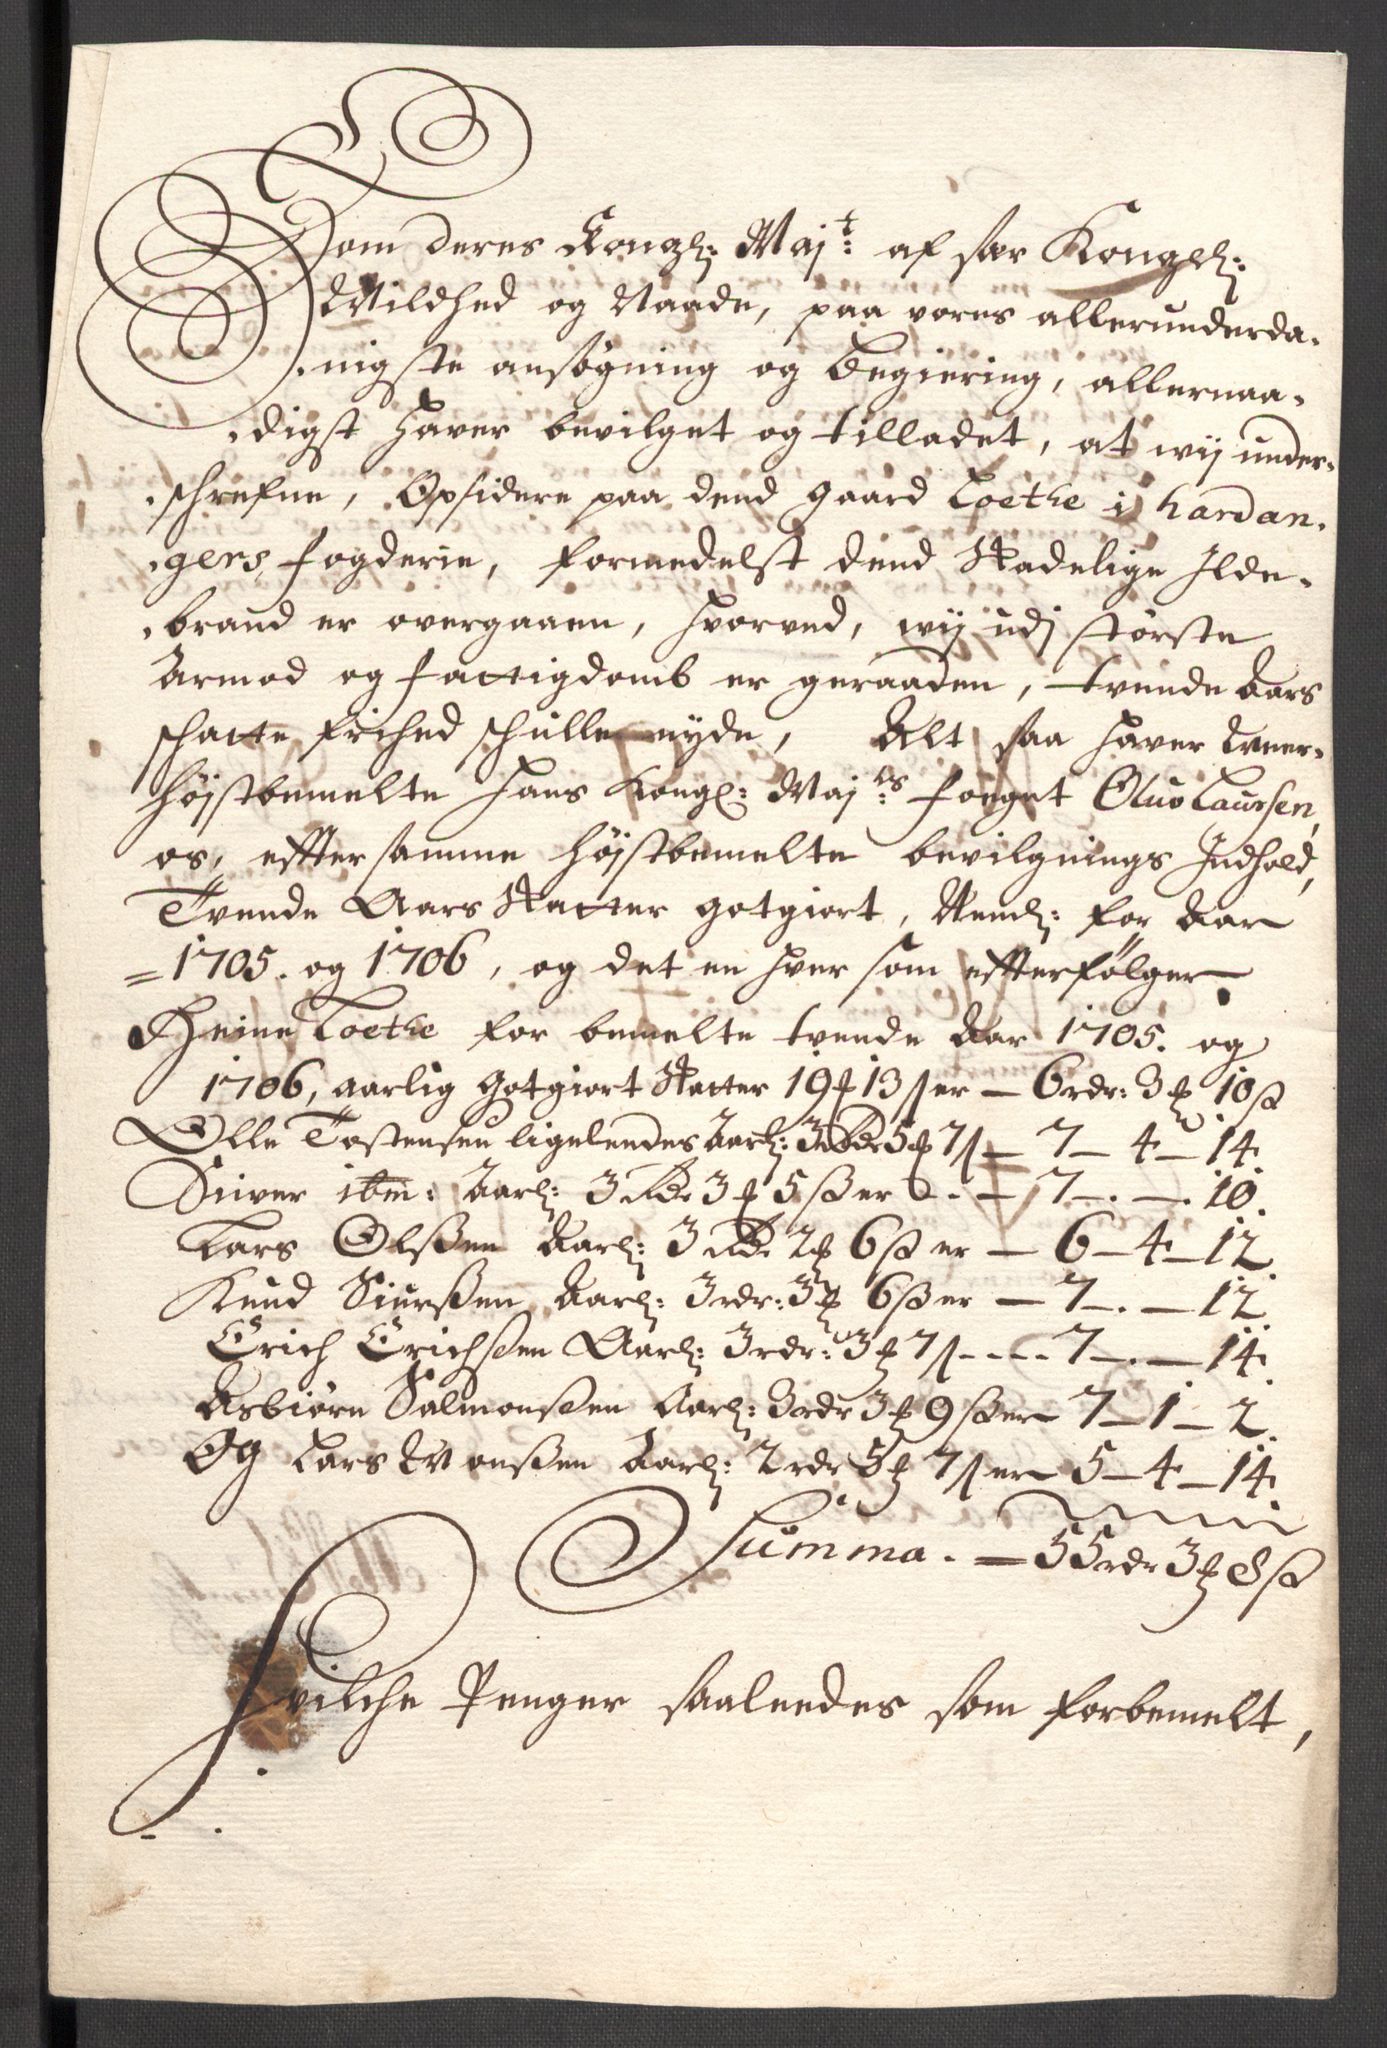 Som deres Kongl: Maj:t af sær Kongel:
Mildhed og Naade, paa vores allerunderda-
nigste ansøgning og begiering, allernaa-
digst haver bevilget og tilladet, at wij under-
schrefne, Opsidere paa dend gaard Loethe i hardan-
gers fogderie, formedelst dend skadelige Ilde-
brand er overgaaen, hvorved, wij udj største
Armod og fattigdomb er geraaden, tvende Aars
schatte frihed schulle nyde, Alt saa haver
højstbemelte Hans Kongl: Maj:ts foeget Oluo Laursen,
os, effter samme højstbemelte bevilgnings Indhold,
Tvende Aars skatter gotgiort, Neml: for Aar
1705. og 1706, og det en hver som effterfølger.
Heine Loethe for bemelte tvende Aar 1705. og
1706, aarlig gotgiort skatter 19 13 ß er — 6 rdr: 3 10 ß
Olle Tostensen ligeleedes Aarl: 3 Rdr 5 7 ß — 7 — 4 — 14.
Siver ibm: Aarl: 3 Rdr 3 5 ß er — 7 — . — 10.
Lars Olßen Aarl: 3 Rdr 2 6 ß er — 6 — 4 — 12.
Knud Siurßen Aarl: 3 rdr: 3 6 ß er — 7 — . — 12.
Erich Erichsen Aarl: 3 rdr: 3 7 ß - - - 7 — . — 14.
Asbiørn Salmonsen Aarl: 3 rdr 3 9 ß er 7 — 1 — 2.
Og Lars Monßen Aarl: 2 rdr 5 7 ß er 5 — 4 — 14.
Summa. — 55 rdr 3 8 ß
Hvilche Penger saaleedes som forbemelt,